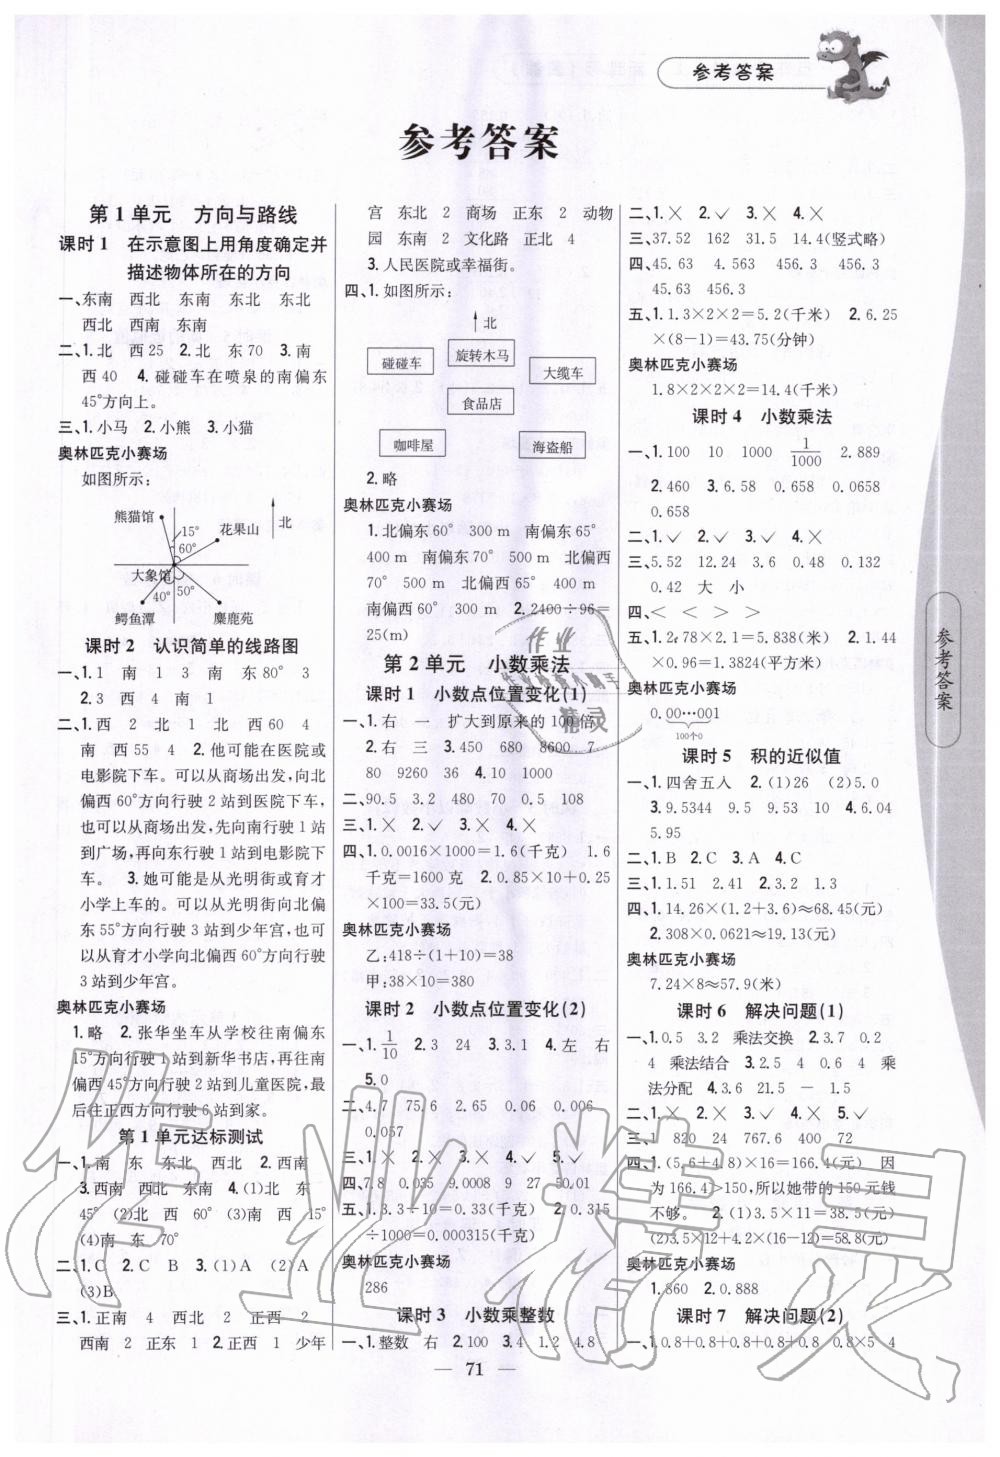 参考答案
参考答案
第1单元 方向与路线
课时1 在示意图上用角度确定并
描述物体所在的方向
一、东南 西北 东南 东北 东北
西北 西南 东南
二、1.北 西25 2.北 东70 3.南
西40 4.碰碰车在喷泉的南偏东
45°方向上。
三、1.小马 2.小熊 3.小猫
奥林匹克小赛场
如图所示:
熊猫馆
15°
60°
花果山
北
大象馆
40°
50°
鳄鱼潭
麋鹿苑
课时2 认识简单的线路图
一、1.1 南 1 3 南 东80° 3
2.3 西 4 南 1
二、1.西 2 北 1 北 西60 4
南 西55 4 2.他可能在医院或
电影院下车。可以从商场出发,向北
偏西60°方向行驶2站到医院下车,
也可以从商场出发,先向南行驶1站
到广场,再向东行驶1站到电影院下
车。 3.她可能是从光明街或育才
小学上车的。可以从光明街向北偏
东55°方向行驶3站到少年宫,也可
以从育才小学向北偏西60°方向行驶
3站到少年宫。
奥林匹克小赛场
1.略 2.张华坐车从学校往南偏东
15°方向行驶1站到新华书店,再往南
偏西45°方向行驶2站到儿童医院,最
后往正西方向行驶6站到家。
第1单元达标测试
一、1.南 东 东北 西北 2.西南
3.西南 西北 东南 4.(1)北 东
45° (2)北 西 60° (3)南 西 15°
(4)南 东 70°
二、1.C 2.C B 3.(1)A (2)A
(3)B
三、1.正南 4 西北 2 正西 2
西南 2 正东 1 2.正西 1 少年
宫 东北 2 商场 正东 2 动物
园 东南 2 文化路 正北 4
3.人民医院或幸福街。
四、1.如图所示:
北
碰碰车
旋转木马
大缆车
食品店
咖啡屋
海盗船
2.略
奥林匹克小赛场
1.北偏东60° 300 m 南偏东65°
400 m 南偏东70° 500 m 北偏西
70° 500 m 北偏西65° 400 m
南偏西60° 300 m 2.2400÷96=
25(m)
第2单元 小数乘法
课时1 小数点位置变化(1)
一、1.右 一 扩大到原来的100倍
2.右 三 3.450 680 8600 7
80 9260 36 4.10 1000
二、90.5 3.2 480 70 0.5 108
三、1.× 2.✓ 3.× 4.×
四、1.0.0016×1000=1.6(千克) 1.6
千克=1600克 2.0.85×10+0.25
×100=33.5(元)
奥林匹克小赛场
乙:418÷(1+10)=38
甲:38×10=380
课时2 小数点位置变化(2)
一、1.1/10 2.3 24 3.3.1 4.左 右
5.0
二、4.7 75.6 2.65 0.06 0.006
0.057
三、1.× 2.× 3.× 4.✓ 5.✓
四、7.8 0.035 9.0008 9 27 50.01
五、1.3.3÷10=0.33(千克) 2.0.315
÷1000=0.000315(千克)
奥林匹克小赛场
286
课时3 小数乘整数
一、1.整数 右 2.100 3.4 1.2 4.8
二、1.× 2.✓ 3.× 4.×
三、37.52 162 31.5 14.4(竖式略)
四、45.63 4.563 456.3 456.3
45.63 456.3
五、1.1.3×2×2=5.2(千米) 2.6.25
×(8-1)=43.75(分钟)
奥林匹克小赛场
1.8×2×2×2=14.4(千米)
课时4 小数乘法
一、1.100 10 1000 1/1000 2.889
2.460 3.6.58 0.658 0.0658
0.658
二、1.✓ 2.✓ 3.✓ 4.×
三、5.52 12.24 3.6 0.48 0.132
0.42 大 小
四、< < > >
五、1.2.78×2.1=5.838(米) 2.1.44
×0.96=1.3824(平方米)
奥林匹克小赛场
0.00…001
100个0
课时5 积的近似值
一、1.四舍五入 2.(1)26 (2)5.0
3.9.5344 9.5 9.53 10 4.6.04
5.95
二、1.B 2.C 3.A 4.C
三、1.1.51 2.41 2.3.2 1.3
四、1.14.26×(1.2+3.6)≈68.45(元)
2.308×0.0621≈19.13(元)
奥林匹克小赛场
7.24×8≈57.9(米)
课时6 解决问题(1)
一、1.0.5 3.2 乘法交换 2.3.7 0.2
4 乘法结合 3.2.5 4 0.6 4 乘
法分配 4.3.6 21.5 - 1.5
二、1.× 2.× 3.✓ 4.× 5.✓
三、1 820 24 767.6 400 72
四、1.(5.6+4.8)×16=166.4(元) 因
为166.4>150,所以她带的150元钱
不够。 2.(1)3.5×11=38.5(元)
(2)3.5×12+4.2×(16-12)=58.8(元)
奥林匹克小赛场
1.860 2.0.888
课时7 解决问题(2)
一、1.0.8+0.8+0.8+0.8+0.8 0.8×5 4
参考答案
71
作业
精灵
作业精灵